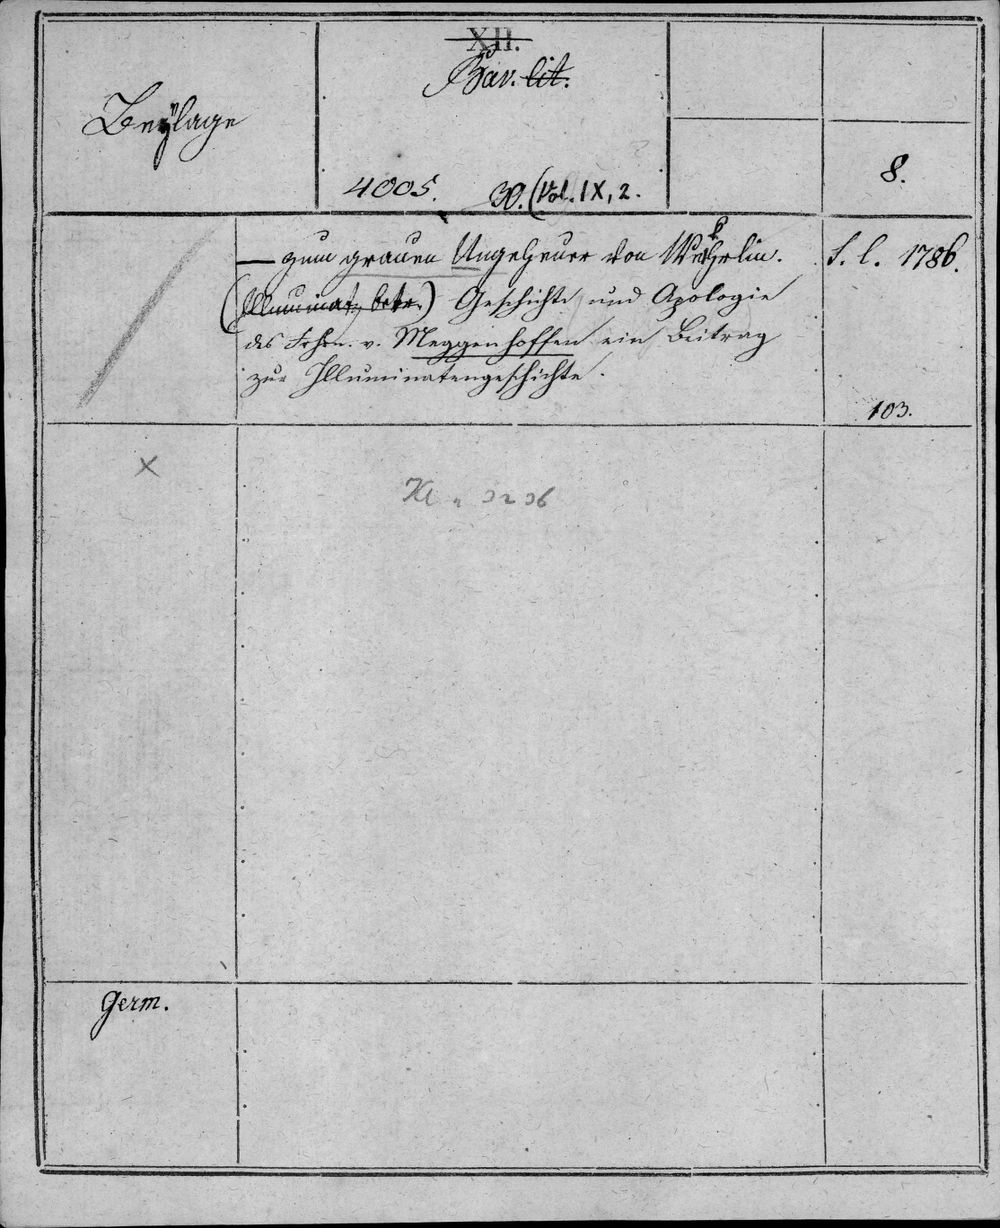 XII.
Bav. lit.
Beÿlage
8.
4005. 30. (Vol. IX, 2.
— zum grauen Ungeheuer von Wekhrlin. S. l. 1786.
(Illuminat. betr.) Geschichte und Apologie
des Frhrn. v. Meggenhoffen ein Beitrag
zur Illuminatengeschichte.
103.
x
germ.